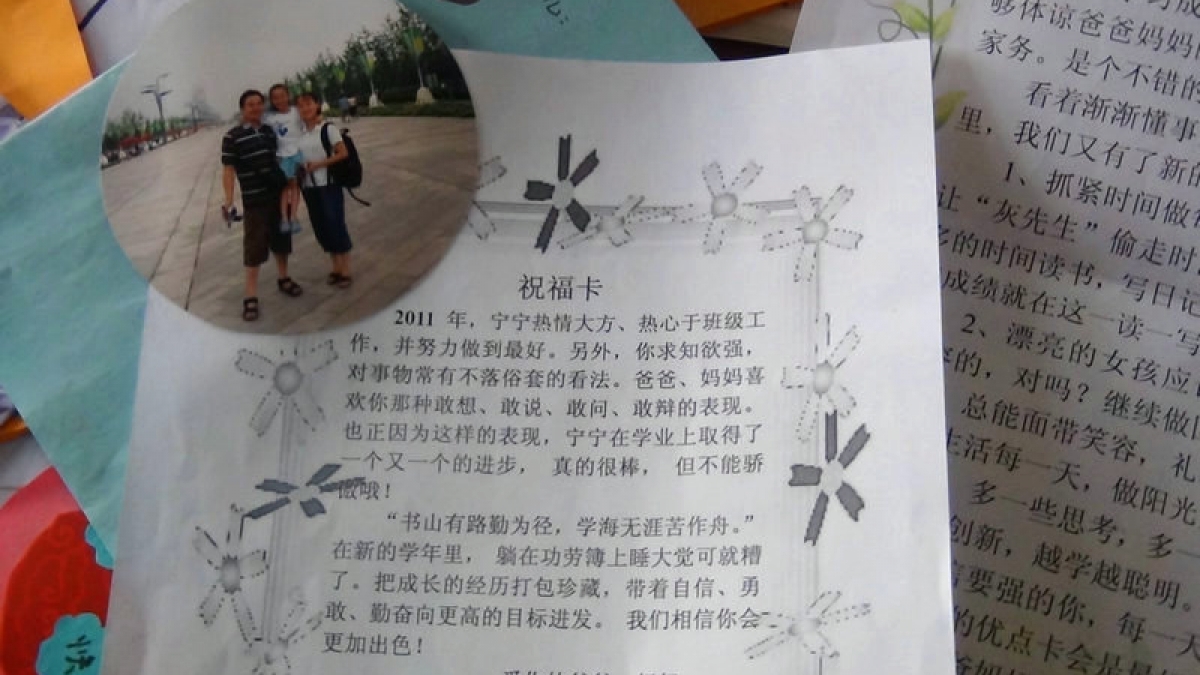 祝福卡
2011 年，宁宁热情大方、热心于班级工
作，并努力做到最好。另外，你求知欲强，
对事物常有不落俗套的看法。爸爸、妈妈喜
欢你那种敢想、敢说、敢问、敢辩的表现。
也正因为这样的表现，宁宁在学业上取得了
一个又一个的进步， 真的很棒， 但不能骄
傲哦！
“书山有路勤为径，学海无涯苦作舟。”
在新的学年里， 躺在功劳簿上睡大觉可就糟
了。把成长的经历打包珍藏，带着自信、勇
敢、勤奋向更高的目标进发。 我们相信你会
更加出色！
够体谅爸爸妈妈
家务。是个不错的
看着渐渐懂事
里，我们又有了新的
1、抓紧时间做
让“灰先生”偷走时
的时间读书，写日记
成绩就在这一读一写
2、漂亮的女孩应
的，对吗？继续做
总能面带笑容，礼
生活每一天，做阳光
多一些思考，多一
创新，越学越聪明。
要强的你，每一天
的优点卡会是最